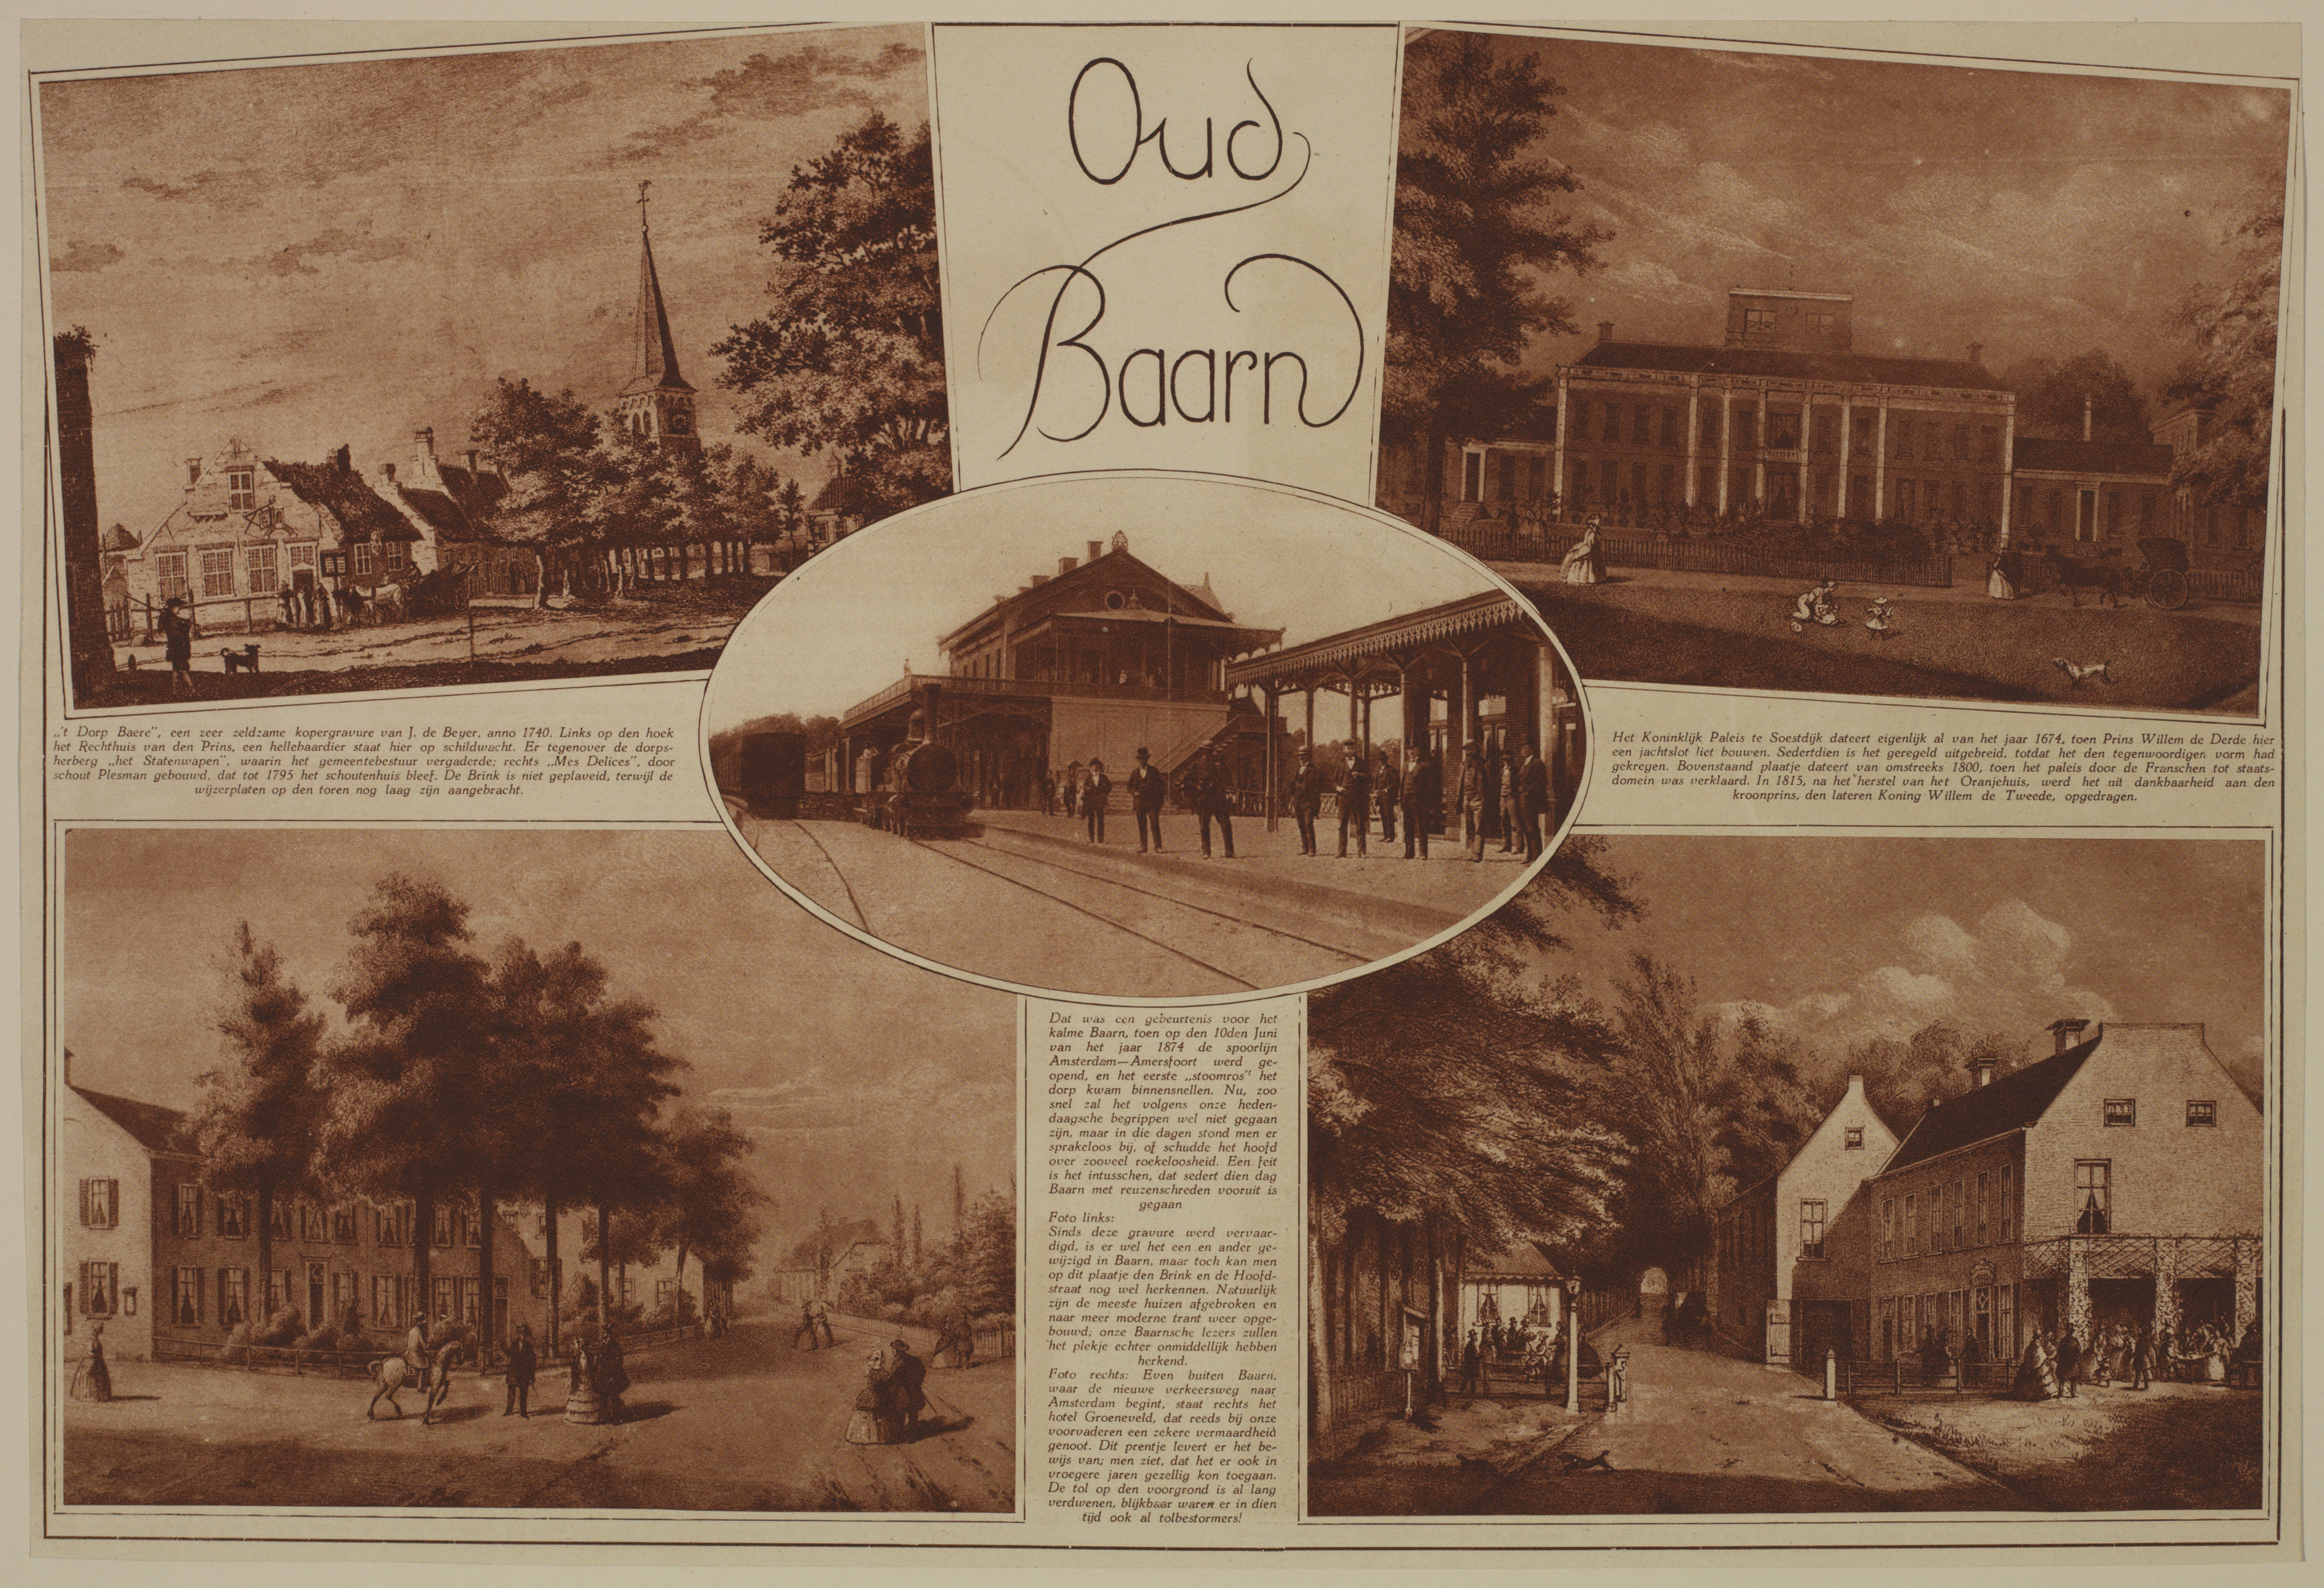 Oud
Baarn
„'t Dorp Baere", een zeer zeldzame kopergravure van J. de Beyer, anno 1740. Links op den hoek
het Rechthuis van den Prins, een hellebaardier staat hier op schildwacht. Er tegenover de dorps-
herberg „het Statenwapen", waarin het gemeentebestuur vergaderde; rechts „Mes Delices", door
schout Plesman gebouwd, dat tot 1795 het schoutenhuis bleef. De Brink is niet geplaveid, terwijl de
wijzerplaten op den toren nog laag zijn aangebracht.
Het Koninklijk Paleis te Soestdijk dateert eigenlijk al van het jaar 1674, toen Prins Willem de Derde hier
een jachtslot liet bouwen. Sedertdien is het geregeld uitgebreid, totdat het den tegenwoordigen vorm had
gekregen. Bovenstaand plaatje dateert van omstreeks 1800, toen het paleis door de Franschen tot staats-
domein was verklaard. In 1815, na het herstel van het Oranjehuis, werd het uit dankbaarheid aan den
kroonprins, den lateren Koning Willem de Tweede, opgedragen.
Dat was een gebeurtenis voor het
kalme Baarn, toen op den 10den Juni
van het jaar 1874 de spoorlijn
Amsterdam—Amersfoort werd ge-
opend, en het eerste „stoomros" het
dorp kwam binnensnellen. Nu, zoo
snel zal het volgens onze heden-
daagsche begrippen wel niet gegaan
zijn, maar in die dagen stond men er
sprakeloos bij, of schudde het hoofd
over zooveel roekeloosheid. Een feit
is het intusschen, dat sedert dien dag
Baarn met reuzenschreden vooruit is
gegaan
Foto links:
Sinds deze gravure werd vervaar-
digd, is er wel het een en ander ge-
wijzigd in Baarn, maar toch kan men
op dit plaatje den Brink en de Hoofd-
straat nog wel herkennen. Natuurlijk
zijn de meeste huizen afgebroken en
naar meer moderne trant weer opge-
bouwd; onze Baarnsche lezers zullen
het plekje echter onmiddellijk hebben
herkend.
Foto rechts: Even buiten Baarn,
waar de nieuwe verkeersweg naar
Amsterdam begint, staat rechts het
hotel Groeneveld, dat reeds bij onze
voorvaderen een zekere vermaardheid
genoot. Dit prentje levert er het be-
wijs van; men ziet, dat het er ook in
vroegere jaren gezellig kon toegaan.
De tol op den voorgrond is al lang
verdwenen, blijkbaar waren er in dien
tijd ook al tolbestormers!